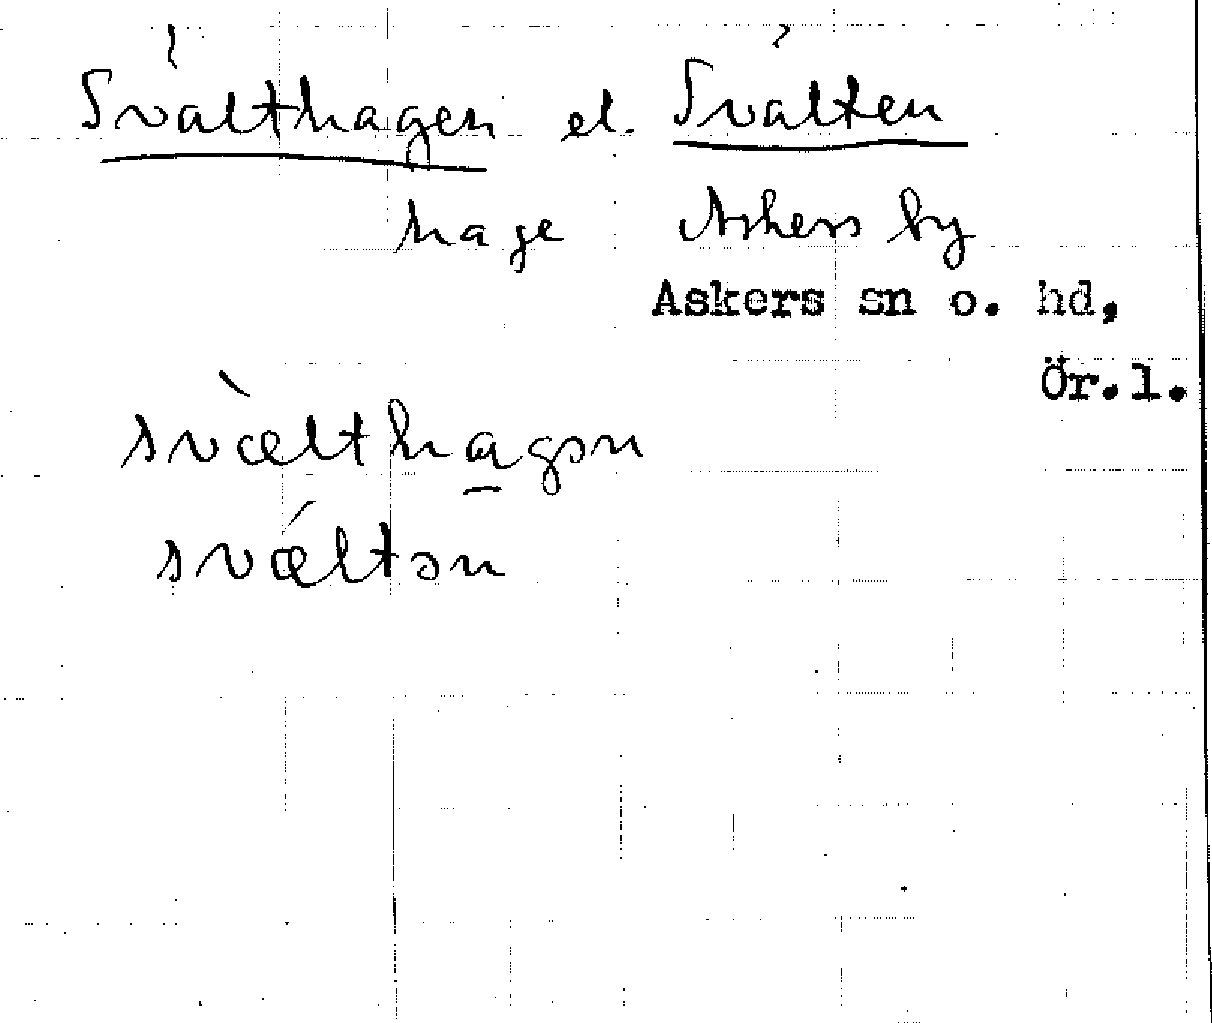 Svälthagen el. Svälten
hage Askers by
Askers sn o. hd,
Ör.l.
svæ̀lthagən
svǽltən